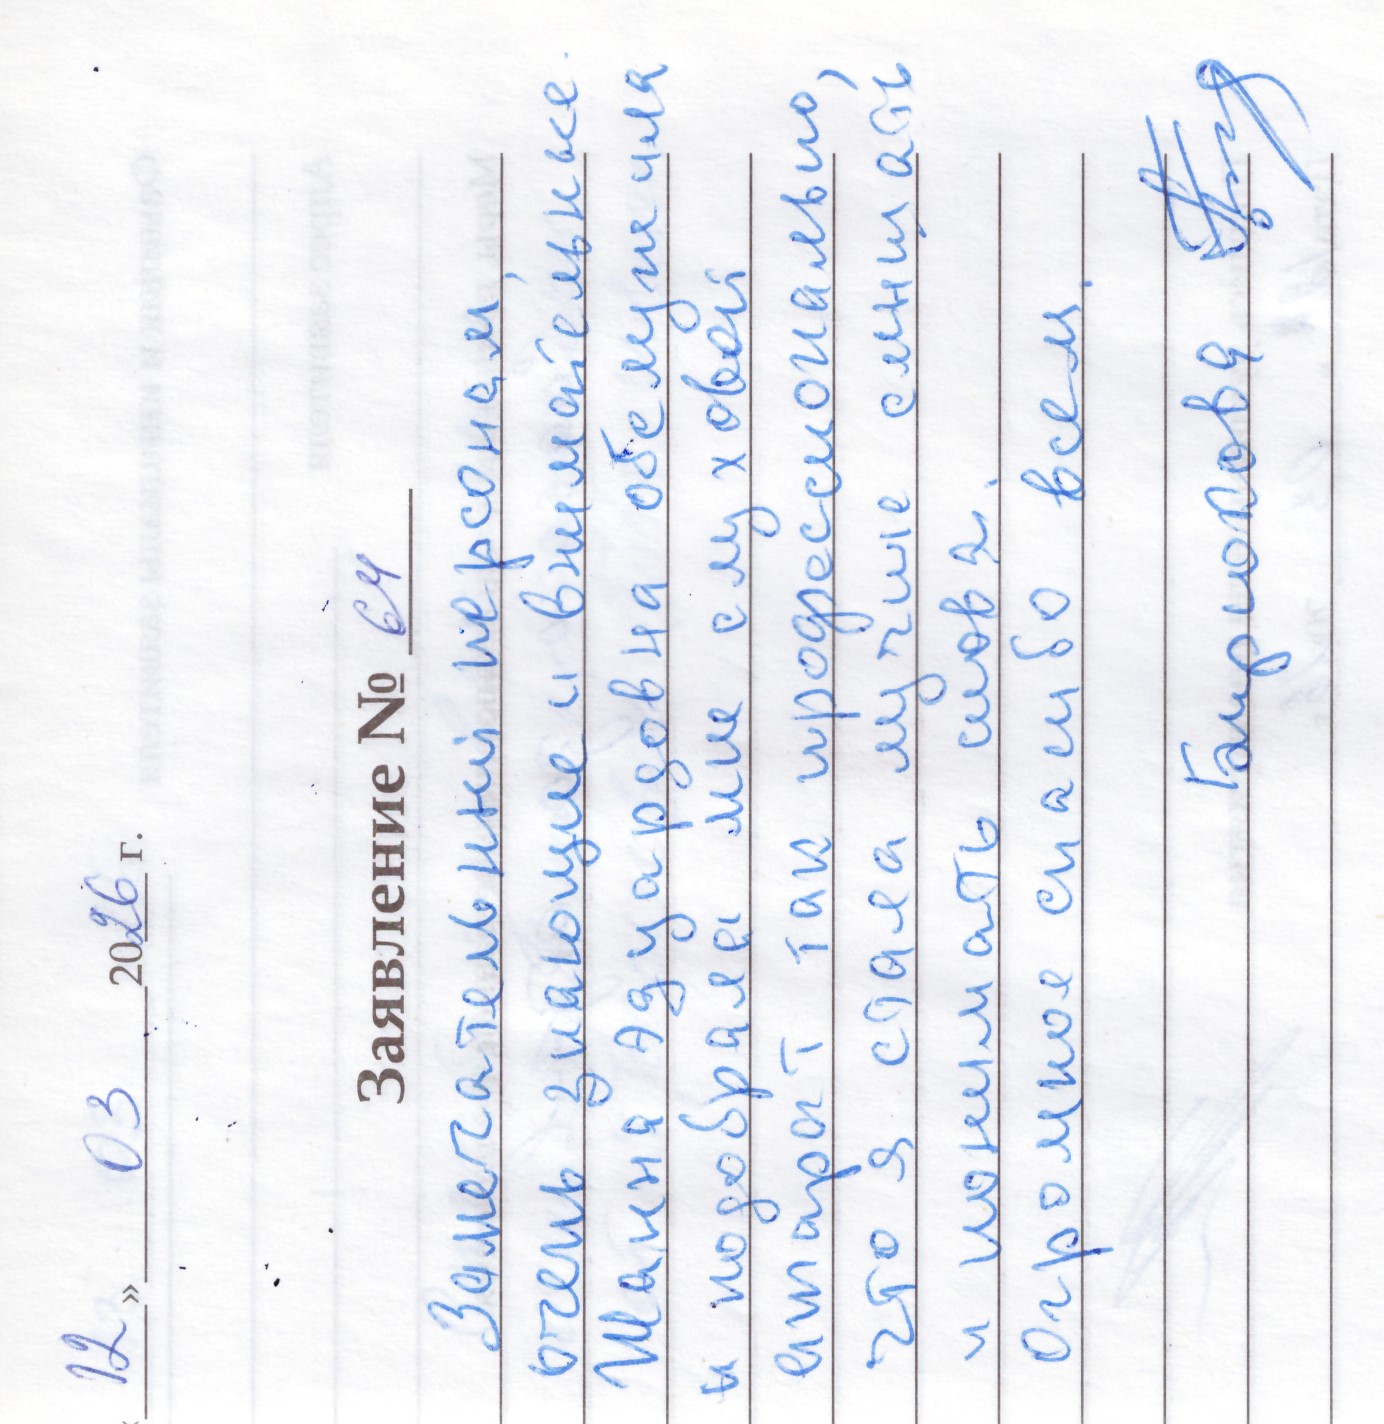 12 » 03 2026 г.
Заявление № 64
Замечательный персонал,
очень знающие и внимательные.
Жанна Эдуардовна обслужила
и подобрала мне слуховой
аппарат так профессионально,
что я стала лучше слышать
и понимать слова.
Огромное спасибо всем.